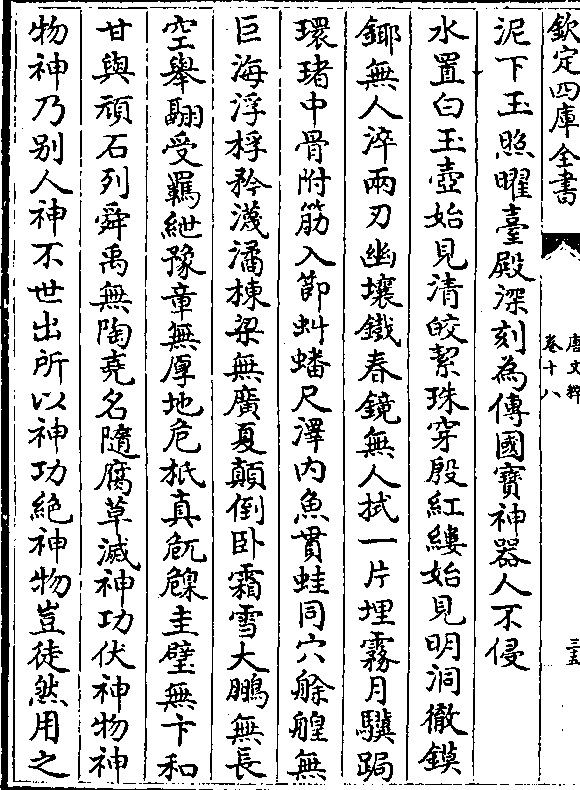 欽定四庫全書
唐文粹
卷十八
三五
泥下玉照曜臺殿深刻為傳國寶神器人不侵
水置白玉壺始見清皎絜珠穿殷紅縷始見明洞徹鏌
鎁無人淬兩刃幽壤鐵春鏡無人拭一片埋霧月驥跼
環琽中骨附筋入節虬蟠尺澤内魚貫蛙同穴艅艎無
巨海浮桴矜瀎潏棟梁無廣夏顛倒卧霜雪大鵬無長
空舉翮受羈紲豫章無厚地危柢真卼臲圭璧無卞和
甘與頑石列舜禹無陶堯名隨腐草滅神功伏神物神
物神乃别人神不世出所以神功絶神物豈徒然用之